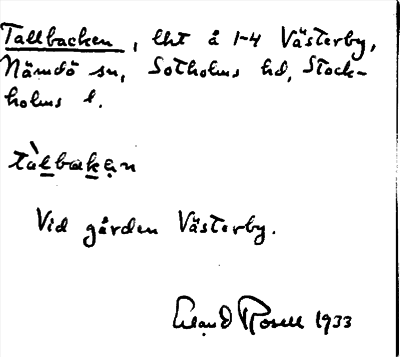 Tallbacken, lht å 1-4 Västerby,
Nämdö sn, Sotholms hd, Stock-
holms l.
tàlbakẹn
Vid gården Västerby.
Erland Rosell 1933